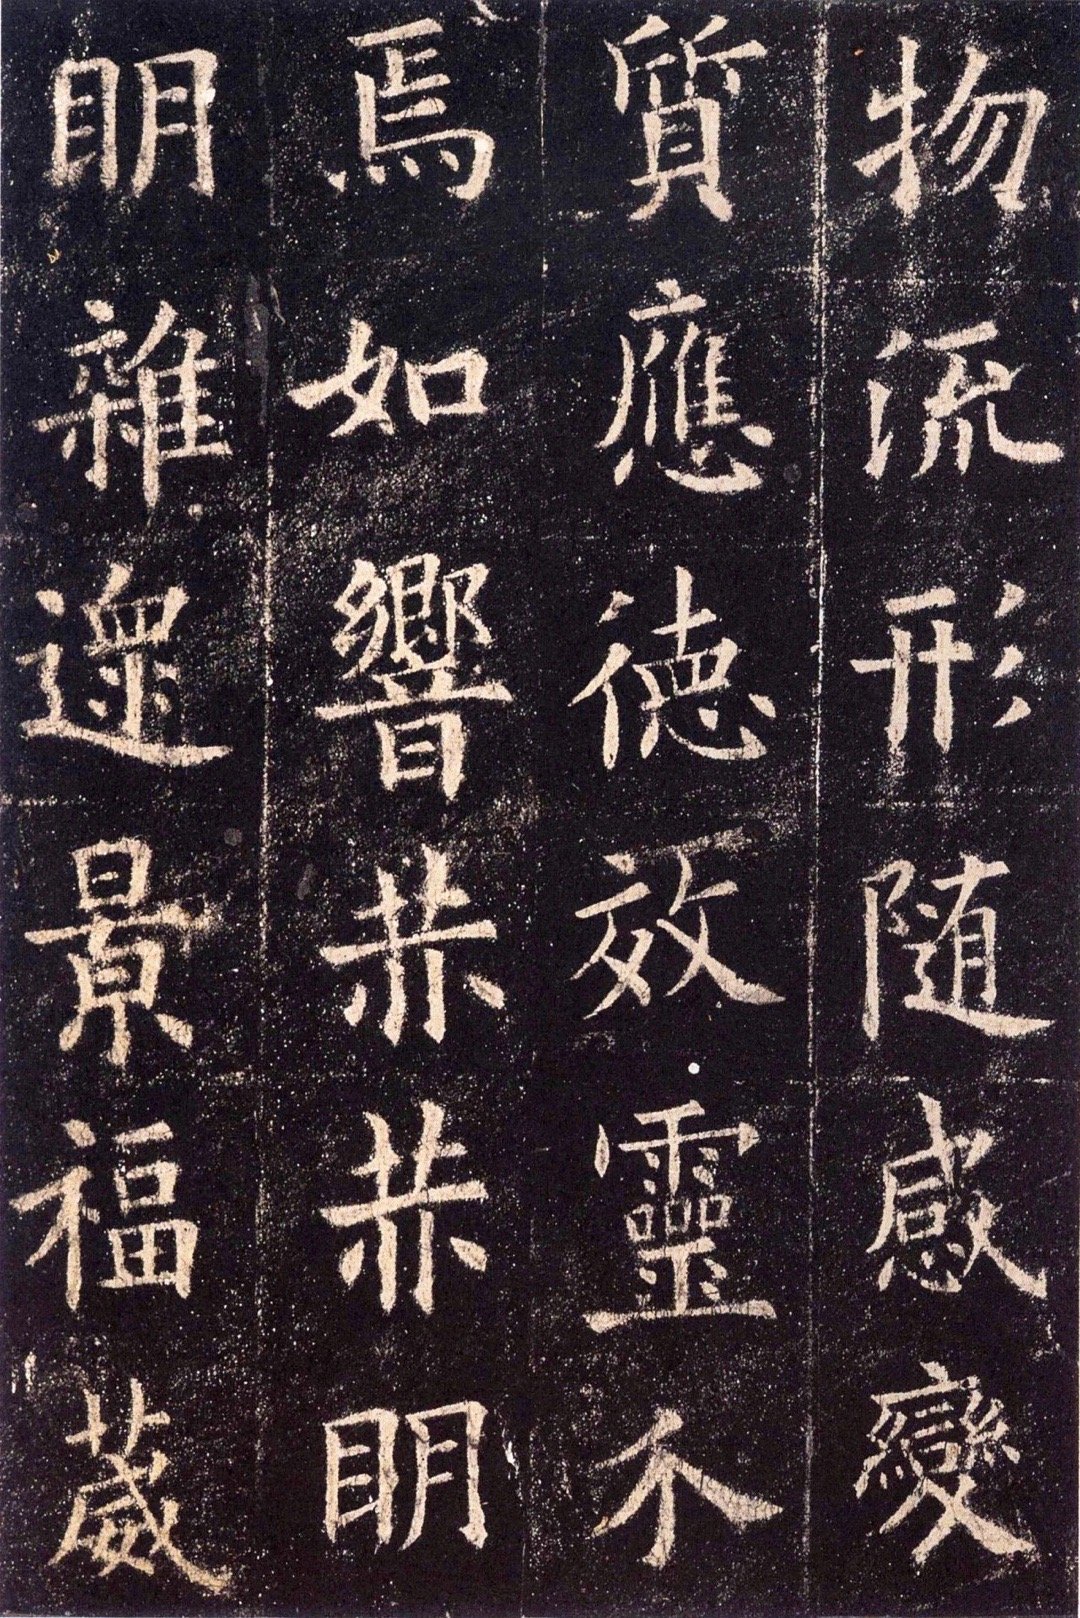 物流形隨感變
質應德效靈不
焉如響赫赫明
明雜遝景福葳